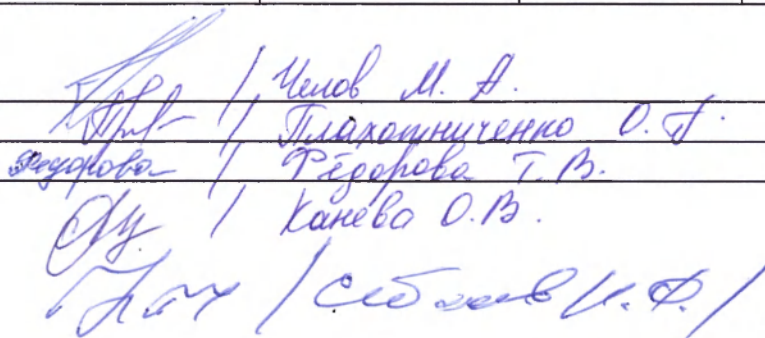 / Челов М. А.
/ Плахотниченко О. П.
Федорова / Фёдорова Т. В.
/ Канева О.В.
/ И. Ф. /